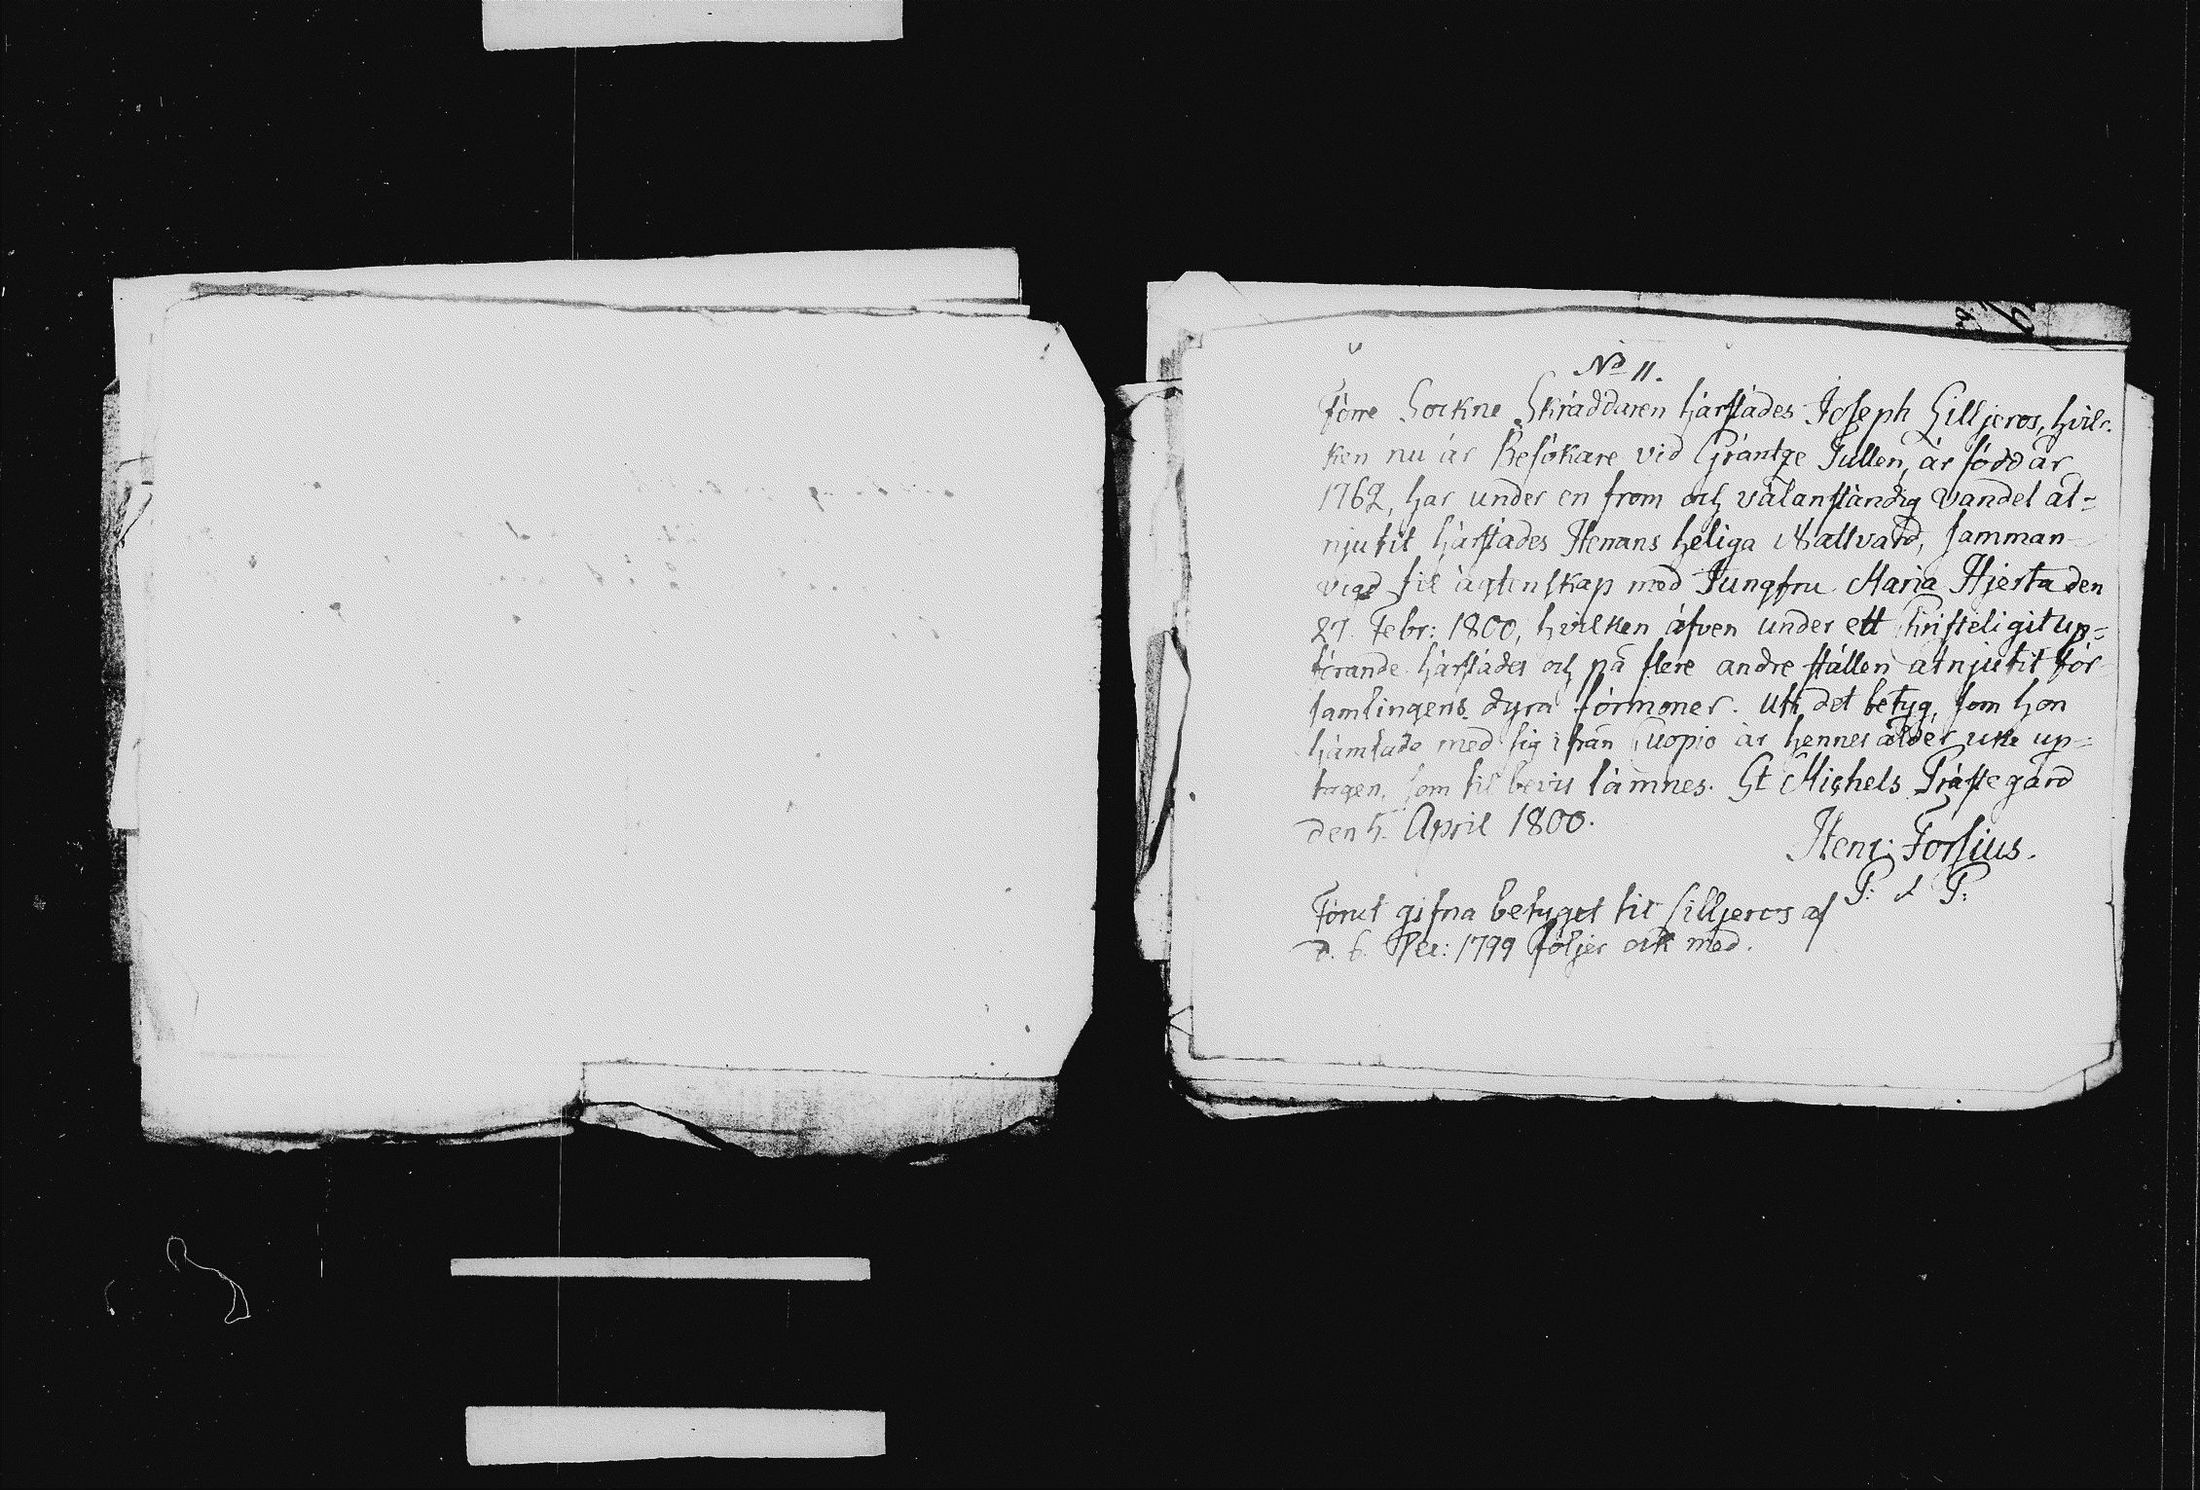 No 11.
Förre Sockne Skräddaren härstädes Joseph Lilljeros, hvil-
ken nu är Besökare vid Gräntze Tullen, är född år
1762, har under en from och välanständig vandel åt-
njutit härstädes Herrans heliga Nattvard, samman-
vigd til ägtenskap med Jungfru Maria Hjerta den
27. Febr: 1800, hvilken äfven under ett Christeligit up-
förande härstädes och på flere andre ställen åtnjutit för-
samlingens dyra förmoner. Uti det betyg, som hon
hämtade med sig ifrån Cuopio är hennes ålder icke up-
tagen, som til bevis lämnes. St Michels Prästegård
den 4. April 1800.
Henr: Forsius.
P: & P:
Förut gifna betyget til Lilljeros af
d. 6. Dec: 1799 följer ock med.